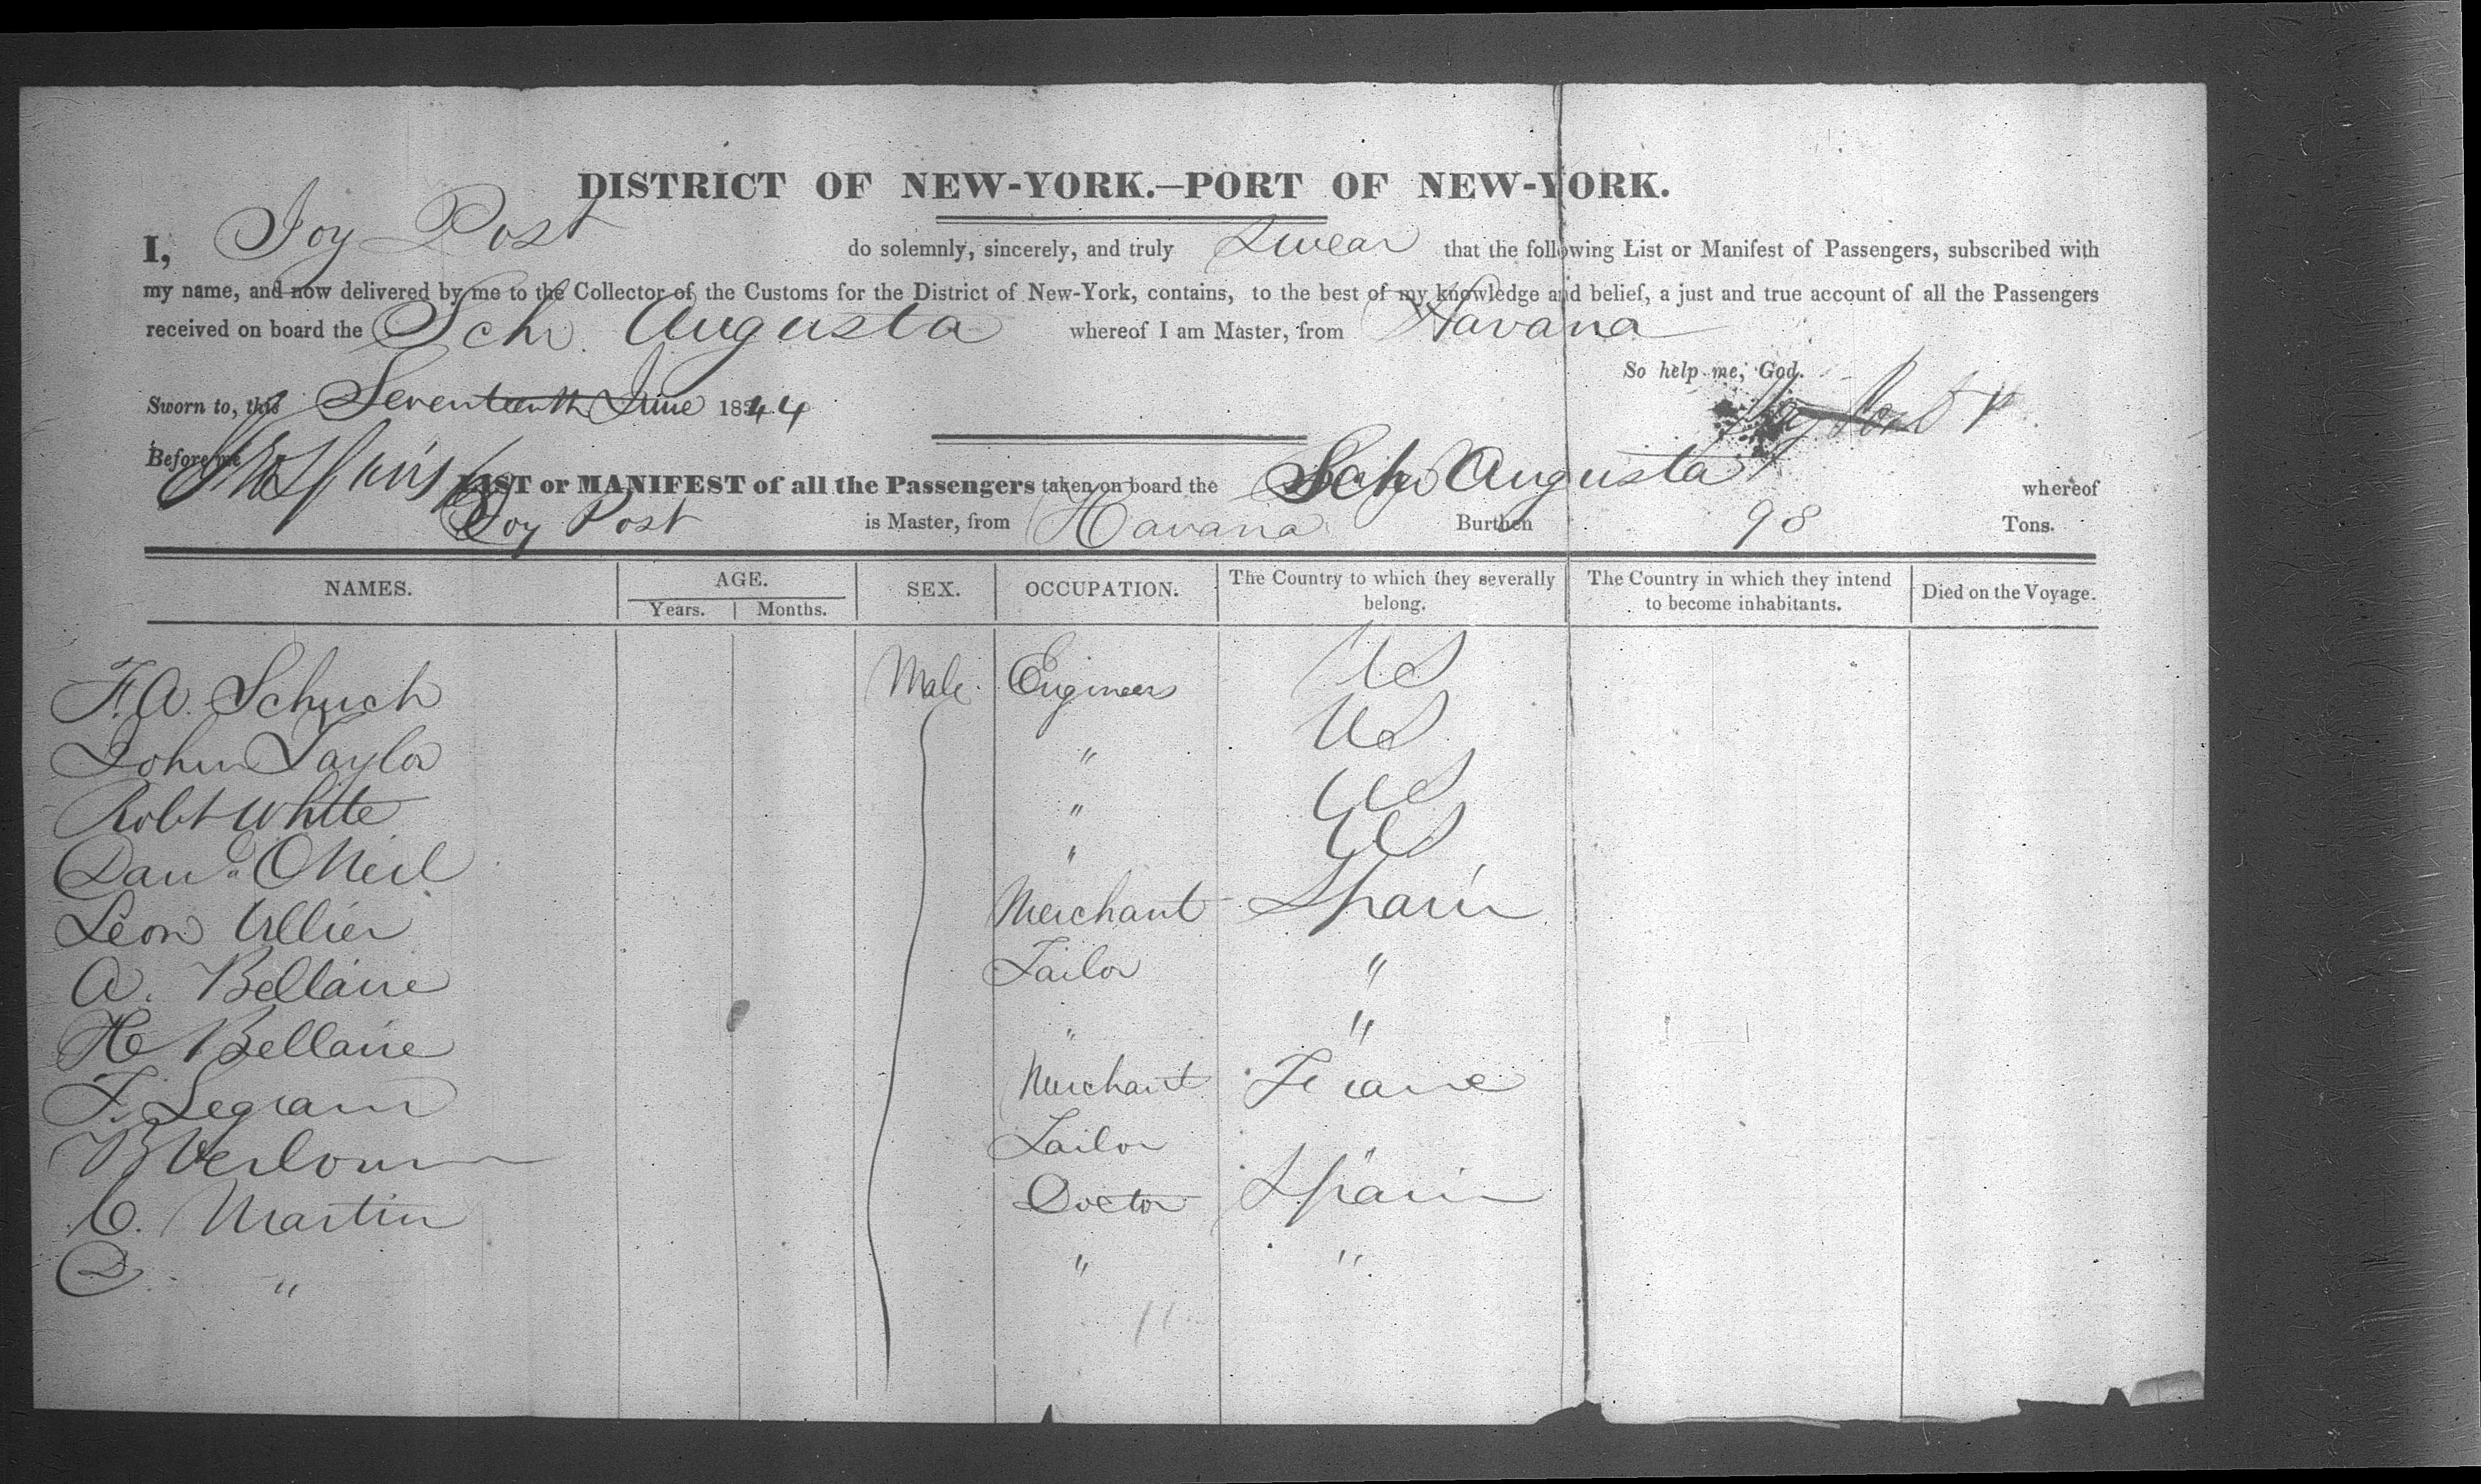 DISTRICT OF NEW-YORK.—PORT OF NEW-YORK.
I, Joy Post do solemnly, sincerely, and truly swear that the following List or Manifest of Passengers, subscribed with
my name, and now delivered by me to the Collector of the Customs for the District of New-York, contains, to the best of my knowledge and belief, a just and true account of all the Passengers
received on board the Schr. Augusta whereof I am Master, from Havana
So help me, God.
Sworn to, this Seventeenth June 1844
Joy Post
Before me
LIST or MANIFEST of all the Passengers taken on board the Schr Augusta whereof
Joy Post is Master, from Havana Burthen 98 Tons.
NAMES. AGE. SEX. OCCUPATION. The Country to which they severally belong. The Country in which they intend to become inhabitants. Died on the Voyage.
Years. Months.
F. A. Schuch Male. Engineers US
John Taylor " US
Robt White " US
Danl ONeil " US
Leon Ullier Merchant Spain
A. Bellaire Tailor "
H Bellaire " "
F. Legram Merchant France
B Tailor "
C. Martin Doctor Spain
D. " " "
11